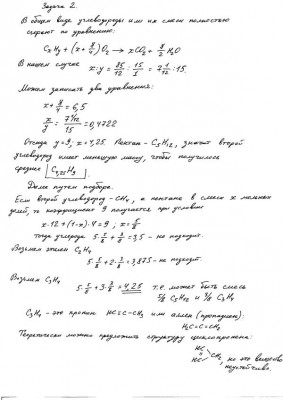 Задача 2.
В общем виде углеводороды или их смесь полностью
сгорают по уравнению:
CxHy + (x + y/4) O2 → x CO2 + y/2 H2O
В нашем случае x:y = 85/12 : 15/1 = 7 1/12 : 15.
Можем записать два уравнения:
x + y/4 = 6,5
x/y = 7 1/12 / 15 = 0,4722
Отсюда y = 9; x = 4,25. Пентан – C5H12, значит второй
углеводород имеет меньшую массу, чтобы получилось
среднее C4,25H9.
Далее путем подбора.
Если второй углеводород – CH4, а пентана в смеси x мольных
долей, то коэффициент 9 получается при условии
x·12 + (1-x)·4 = 9; x = 5/8
тогда углерода 5·5/8 + 3/8 = 3,5 – не подходит.
Возьмем этилен C2H4
5·5/8 + 2·3/8 = 3,875 – не подходит.
Возьмем C3H4
5·5/8 + 3·3/8 = 4,25 т.е. может быть смесь
5/8 C5H12 и 3/8 C3H4
C3H4 – это пропин HC≡C–CH3 или аллен (пропадиен):
H2C=C=CH2
Теоретически можно предложить структуру циклопропена:
HC
HC CH2, но это вещество
неустойчиво.